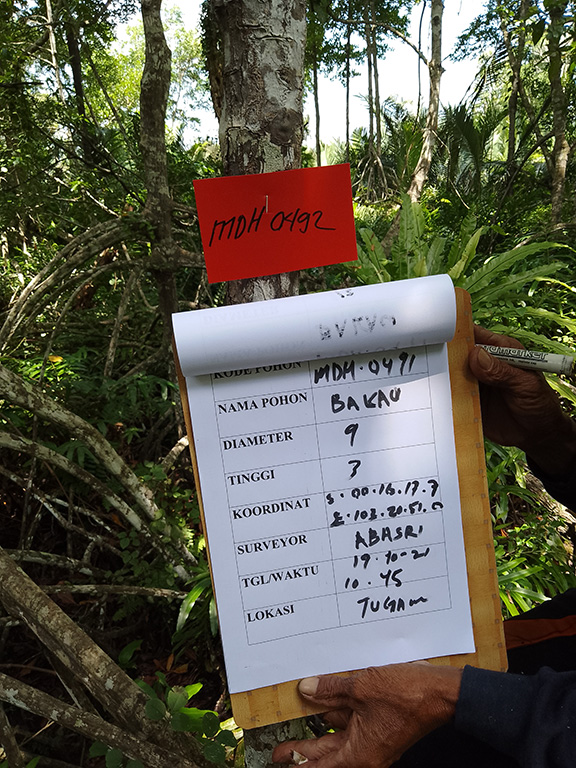 MDH 0492
KODE POHON MDH-0491
NAMA POHON BAKAU
DIAMETER 9
TINGGI 3
KOORDINAT S.00.16.17.7
E.103.20.51.0
SURVEYOR ABASRI
TGL/WAKTU 19-10-21
10.45
LOKASI